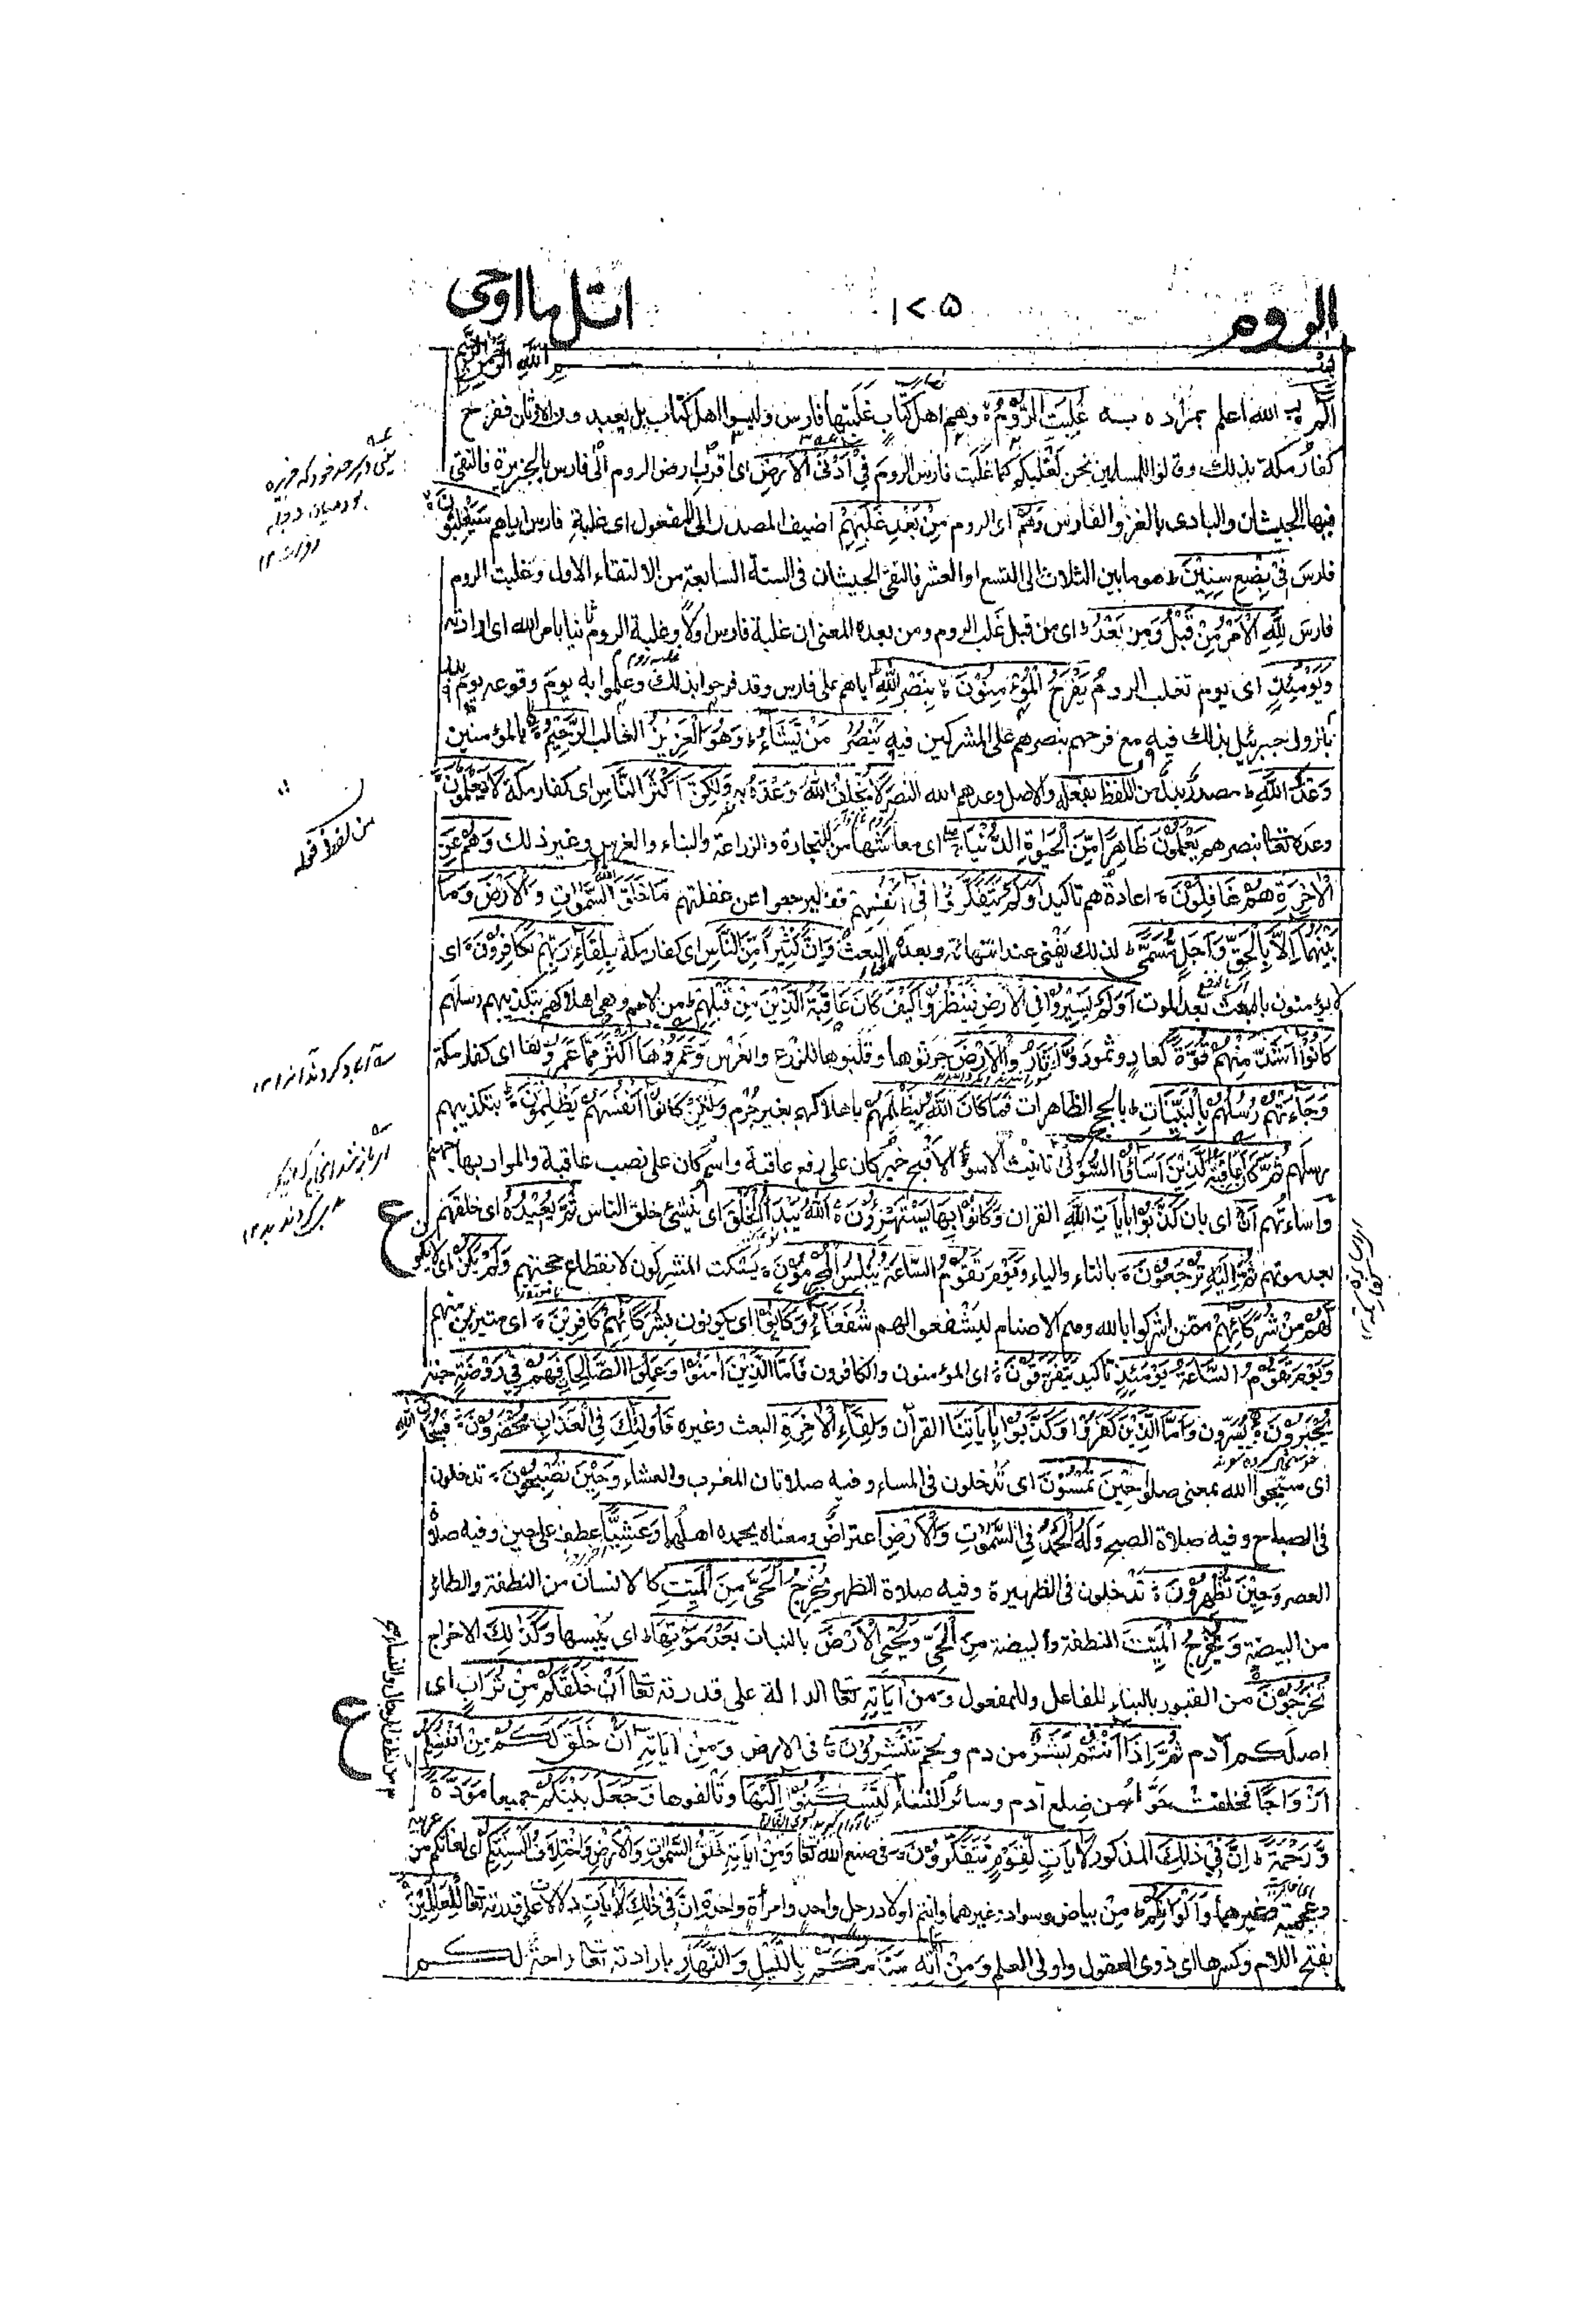 الروم
١٧٥
اتل ما اوحی
بسم الله الرحمن الرحیم
الٓمّٓ الله اعلم بمراده به غُلِبَتِ الرُّوْمُ وهم اهل کتاب غلبتها فارس ولیسوا اهل کتاب بل یعبدون الاوثان ففرح
کفار مکة بذلك وقالوا للمسلمین نحن نغلبکم کما غلبت فارس الروم فِیْٓ اَدْنَی الْاَرْضِ ای اقرب ارض الروم الی فارس بالجزیرة فالتقی
فیها الجیشان والبادی بالغزو الفارس وَهُمْ ای الروم مِنْۢ بَعْدِ غَلَبِهِمْ اضیف المصدر الی المفعول ای غلبة فارس ایاهم سَیَغْلِبُوْنَ
فارس فِیْ بِضْعِ سِنِیْنَ هو ما بین الثلاث الی التسع او العشر فالتقی الجیشان فی السنة السابعة من الالتقاء الاول وغلبت الروم
فارس لِلّٰهِ الْاَمْرُ مِنْ قَبْلُ وَمِنْ بَعْدُ ای من قبل غلب الروم ومن بعده المعنی ان غلبة فارس اولا وغلبة الروم ثانیا بامر الله ای ارادته
وَیَوْمَئِذٍ ای یوم تغلب الروم یَفْرَحُ الْمُؤْمِنُوْنَ بِنَصْرِ اللهِ ایاهم علی فارس وقد فرحوا بذلك وعلموا به یوم وقوعه یوم بدر
بنزول جبرئیل بذلك فیه مع فرحهم بنصرهم علی المشرکین فیه یَنْصُرُ مَنْ یَّشَآءُ وَهُوَ الْعَزِیْزُ الغالب الرَّحِیْمُ بالمؤمنین
وَعْدَ اللهِ مصدر بدل من اللفظ بفعله والاصل وعدهم الله النصر لَا یُخْلِفُ اللهُ وَعْدَهٗ به وَلٰکِنَّ اَکْثَرَ النَّاسِ ای کفار مکة لَا یَعْلَمُوْنَ
وعده تعا بنصرهم یَعْلَمُوْنَ ظَاهِرًا مِّنَ الْحَیٰوةِ الدُّنْیَا ای معائشها من التجارة والزراعة والبناء والغرس وغیر ذلك وَهُمْ عَنِ
الْاٰخِرَةِ هُمْ غَافِلُوْنَ اعادة هم تاکید اَوَلَمْ یَتَفَکَّرُوْا فِیْٓ اَنْفُسِهِمْ لیرجعوا عن غفلتهم مَا خَلَقَ اللهُ السَّمٰوٰتِ وَالْاَرْضَ وَمَا
بَیْنَهُمَآ اِلَّا بِالْحَقِّ وَاَجَلٍ مُّسَمًّی لذلك یفنی عند انتهائه وبعده البعث وَاِنَّ کَثِیْرًا مِّنَ النَّاسِ ای کفار مکة بِلِقَآءِ رَبِّهِمْ لَکَافِرُوْنَ ای
لا یؤمنون بالبعث بعد الموت اَوَلَمْ یَسِیْرُوْا فِی الْاَرْضِ فَیَنْظُرُوْا کَیْفَ کَانَ عَاقِبَةُ الَّذِیْنَ مِنْ قَبْلِهِمْ من الامم وهی اهلاکهم بتکذیبهم رسلهم
کَانُوْٓا اَشَدَّ مِنْهُمْ قُوَّةً کعاد وثمود وَّاَثَارُوا الْاَرْضَ حرثوها وقلبوها للزرع والغرس وَعَمَرُوْهَآ اَکْثَرَ مِمَّا عَمَرُوْهَا ای کفار مکة
وَجَآءَتْهُمْ رُسُلُهُمْ بِالْبَیِّنٰتِ بالحجج الظاهرات فَمَا کَانَ اللهُ لِیَظْلِمَهُمْ باهلاکهم بغیر جرم وَلٰکِنْ کَانُوْٓا اَنْفُسَهُمْ یَظْلِمُوْنَ بتکذیبهم
رسلهم ثُمَّ کَانَ عَاقِبَةَ الَّذِیْنَ اَسَآءُوا السُّوْٓاٰی تانیث الاسوأ الاقبح خبر کان علی رفع عاقبة واسم کان علی نصب عاقبة والمراد بها جهنم
واساءتهم اَنْ ای بان کَذَّبُوْا بِاٰیَاتِ اللهِ القران وَکَانُوْا بِهَا یَسْتَهْزِءُوْنَ اَللهُ یَبْدَؤُا الْخَلْقَ ای ینشئ خلق الناس ثُمَّ یُعِیْدُهٗ ای خلقهم
بعد موتهم ثُمَّ اِلَیْهِ تُرْجَعُوْنَ بالتاء والیاء وَیَوْمَ تَقُوْمُ السَّاعَةُ یُبْلِسُ الْمُجْرِمُوْنَ یسکت المشرکون لانقطاع حجتهم وَلَمْ یَکُنْ ای لا یکون
لَهُمْ مِنْ شُرَکَآئِهِمْ ممن اشرکوا بالله وهم الاصنام لیشفعوا لهم شُفَعَآءُ وَکَانُوْا ای یکونون بِشُرَکَآئِهِمْ کَافِرِیْنَ ای متبرئین منهم
وَیَوْمَ تَقُوْمُ السَّاعَةُ یَوْمَئِذٍ تاکید یَّتَفَرَّقُوْنَ ای المؤمنون والکافرون فَاَمَّا الَّذِیْنَ اٰمَنُوْا وَعَمِلُوا الصَّالِحَاتِ فَهُمْ فِیْ رَوْضَةٍ جنة
یُحْبَرُوْنَ یسرون وَاَمَّا الَّذِیْنَ کَفَرُوْا وَکَذَّبُوْا بِاٰیَاتِنَا القرآن وَلِقَآءِ الْاٰخِرَةِ البعث وغیره فَاُولٰٓئِكَ فِی الْعَذَابِ مُحْضَرُوْنَ فَسُبْحَانَ اللهِ
ای سبحوا الله بمعنی صلوا حِیْنَ تُمْسُوْنَ ای تدخلون فی المساء وفیه صلاتان المغرب والعشاء وَحِیْنَ تُصْبِحُوْنَ تدخلون
فی الصباح وفیه صلاة الصبح وَلَهُ الْحَمْدُ فِی السَّمٰوٰتِ وَالْاَرْضِ اعتراض ومعناه یحمده اهلهما وَعَشِیًّا عطف علی حین وفیه صلوة
العصر وَحِیْنَ تُظْهِرُوْنَ تدخلون فی الظهیرة وفیه صلاة الظهر یُخْرِجُ الْحَیَّ مِنَ الْمَیِّتِ کالانسان من النطفة والطائر
من البیضة وَیُخْرِجُ الْمَیِّتَ النطفة والبیضة مِنَ الْحَیِّ وَیُحْیِی الْاَرْضَ بالنبات بَعْدَ مَوْتِهَا ای یبسها وَکَذٰلِكَ الاخراج
تُخْرَجُوْنَ من القبور بالبناء للفاعل وللمفعول وَمِنْ اٰیَاتِهٖٓ تعا الدالة علی قدرته تعا اَنْ خَلَقَکُمْ مِّنْ تُرَابٍ ای
اصلکم آدم ثُمَّ اِذَآ اَنْتُمْ بَشَرٌ من دم ولحم تَنْتَشِرُوْنَ فی الارض وَمِنْ اٰیَاتِهٖٓ اَنْ خَلَقَ لَکُمْ مِّنْ اَنْفُسِکُمْ
اَزْوَاجًا فخلقت حواء من ضلع آدم وسائر النساء لِّتَسْکُنُوْٓا اِلَیْهَا وتالفوها وَجَعَلَ بَیْنَکُمْ جمیعا مَّوَدَّةً
وَّرَحْمَةً اِنَّ فِیْ ذٰلِكَ المذکور لَاٰیَاتٍ لِّقَوْمٍ یَّتَفَکَّرُوْنَ فی صنع الله تعا وَمِنْ اٰیَاتِهٖ خَلْقُ السَّمٰوٰتِ وَالْاَرْضِ وَاخْتِلَافُ اَلْسِنَتِکُمْ ای لغاتکم من عربیة
وعجمیة وغیرهما وَاَلْوَانِکُمْ من بیاض وسواد وغیرهما وانتم اولاد رجل واحد وامرأة واحدة اِنَّ فِیْ ذٰلِكَ لَاٰیَاتٍ دلالات علی قدرته تعا لِّلْعٰلِمِیْنَ
بفتح اللام وکسرها ای ذوی العقول واولی العلم وَمِنْ اٰیٰتِهٖ مَنَامُکُمْ بِاللَّیْلِ وَالنَّهَارِ بارادته تعا راحة لکم
ع
ع